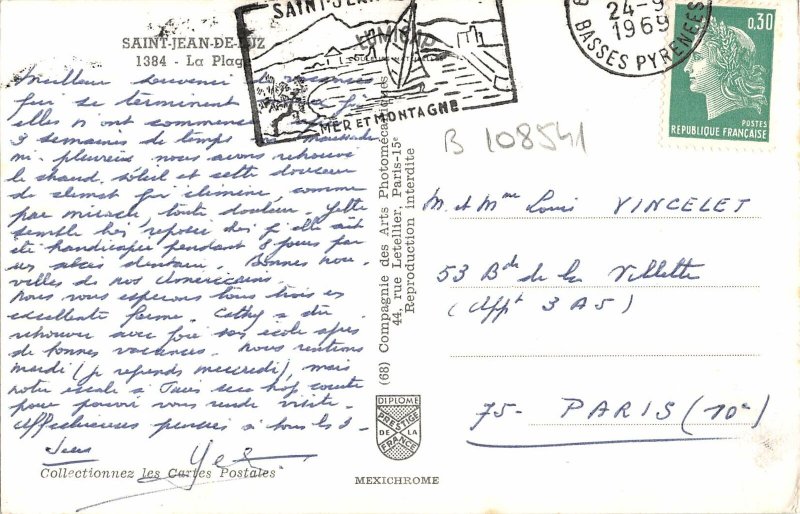 SAINT-JEAN-DE-LUZ
1384 - La Plage
Meilleur souvenir de vacances
qui se terminent
elles n'ont commencé
3 semaines de temps
mi-pleureux nous avons retrouvé
le chaud soleil et cette douceur
de climat qui élimine, comme
par miracle, toute douleur. Yette
semble bien reposée bien qu'elle ait
été handicapée pendant 8 jours par
un abcès dentaire. Bonnes nou-
velles de nos Américains.
Nous vous espérons tous trois en
excellente forme. Cathy a dû
retrouver avec joie son école après
de bonnes vacances. Nous rentrons
mardi (je reprends mercredi), mais
notre escale à Paris sera trop courte
pour pouvoir vous rendre visite.
Affectueuses pensées à tous les 3.
Collectionnez les Cartes Postales
SAINT-JEAN
MER ET MONTAGNE
24-9
1969
BASSES PYRENEES
0,30
POSTES
REPUBLIQUE FRANÇAISE
B 108541
(68) Compagnie des Arts Photomécaniques
44, rue Letellier, Paris-15e
Reproduction interdite
DIPLOME
PRESTIGE
DE LA
FRANCE
MEXICHROME
M. et Mme Louis VINCELET
53 Bd de la Villette
(Appt 3 A5)
75- PARIS (10e)